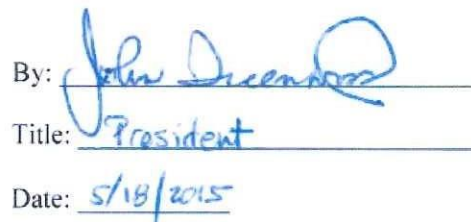 By: John Greenwood
Title: President
Date: 5/18/2015